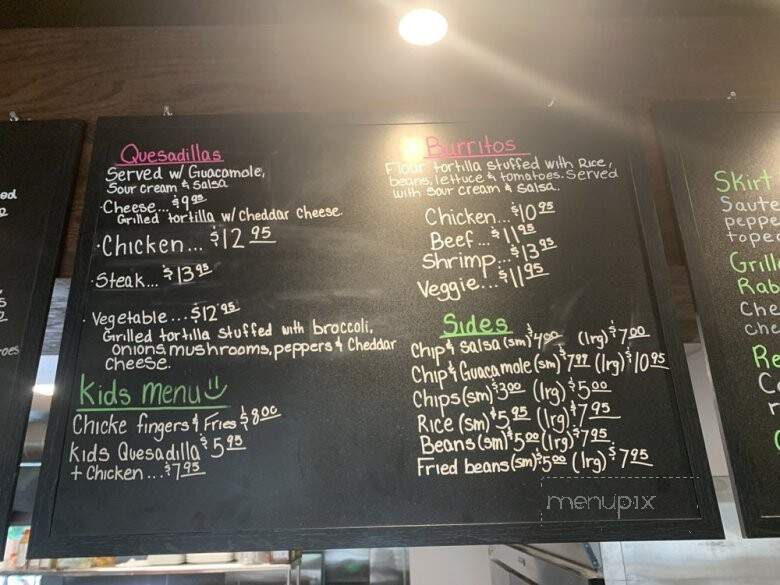 Quesadillas
Served w/ Guacamole,
Sour cream & Salsa
·Cheese... $9.95
Grilled tortilla w/ Cheddar Cheese.
·Chicken... $12.95
·Steak... $13.95
·Vegetable... $12.95
Grilled tortilla stuffed with broccoli,
onions, mushrooms, peppers & Cheddar
cheese.
Kids menu
Chicke fingers & Fries $8.00
Kids Quesadilla $5.95
+ Chicken... $7.95
Burritos
Flour tortilla stuffed with Rice,
beans, lettuce & tomatoes. Served
with Sour cream & Salsa.
Chicken... $10.95
Beef... $11.95
Shrimp... $13.95
Veggie... $11.95
Sides
Chip & Salsa (sm) $4.00 (lrg) $7.00
Chip & Guacamole (sm) (lrg) $10.95
Chips (sm) $3.00 (lrg) $5.00
Rice (sm) $5.95 (lrg) $7.95
Beans (sm) $5.00 (lrg) $7.95
Fried beans (sm) $5.00 (lrg) $7.95
Skirt
Saute
peppe
Grill
Rab
Che
che
Re
menupix